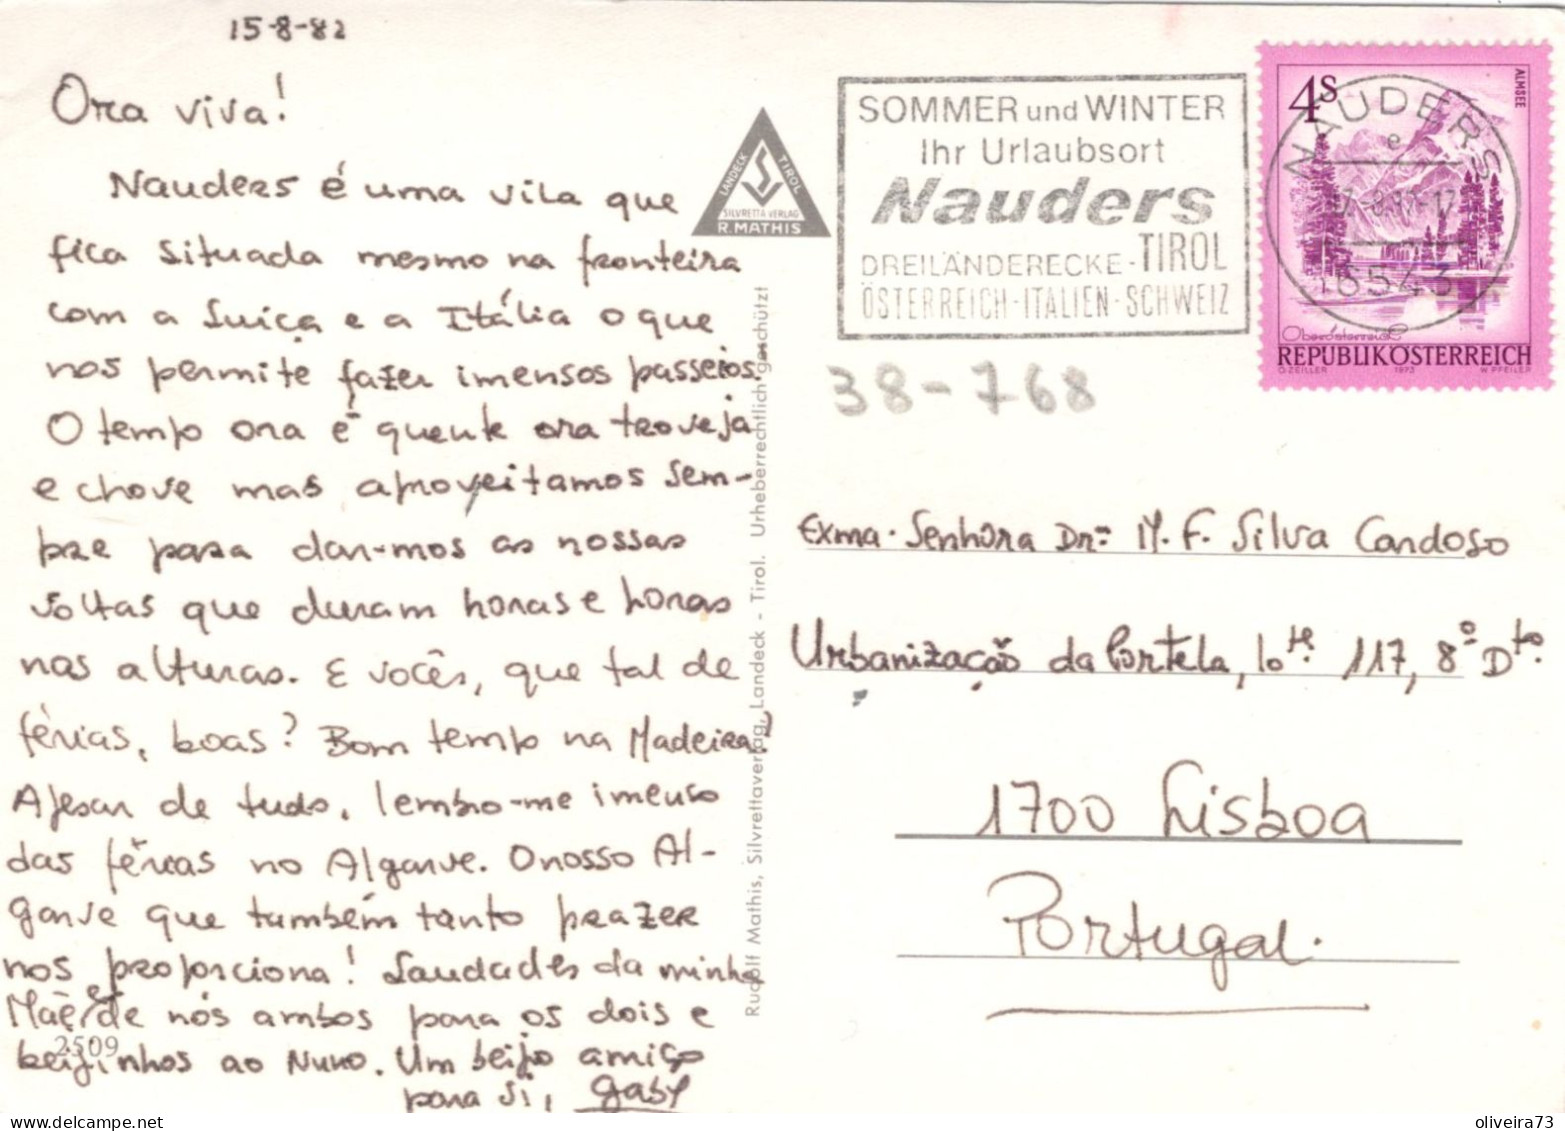 15-8-82
Ora viva!
Nauders é uma vila que
fica situada mesmo na fronteira
com a Suiça e a Itália o que
nos permite fazer imensos passeios.
O tempo ora é quente ora troveja
e chove mas aproveitamos sem-
pre para dar-mos as nossas
voltas que duram horas e horas
nas alturas. E vocês, que tal de
férias, boas? Bom tempo na Madeira?
Apesar de tudo, lembro-me imenso
das férias no Algarve. O nosso Al-
garve que também tanto prazer
nos proporciona! Saudades da minha
Mãe e de nós ambos para os dois e
beijinhos ao Nuno. Um beijo amigo
para si, Gaby
2509
LANDECK TIROL
SILVRETTA VERLAG
R. MATHIS
Rudolf Mathis, Silvrettaverlag, Landeck - Tirol. Urheberrechtlich geschützt
SOMMER und WINTER
Ihr Urlaubsort
Nauders
DREILÄNDERECKE - TIROL
ÖSTERREICH - ITALIEN - SCHWEIZ
4S
ALMSEE
NAUDERS
e
6543
Oberösterreich
REPUBLIK ÖSTERREICH
O. ZEILLER 1973 W. PFEILER
38-768
Exma. Senhora Drª M. F. Silva Cardoso
Urbanização da Portela, lote. 117, 8º Dto.
1700 Lisboa
Portugal.
oliveira73